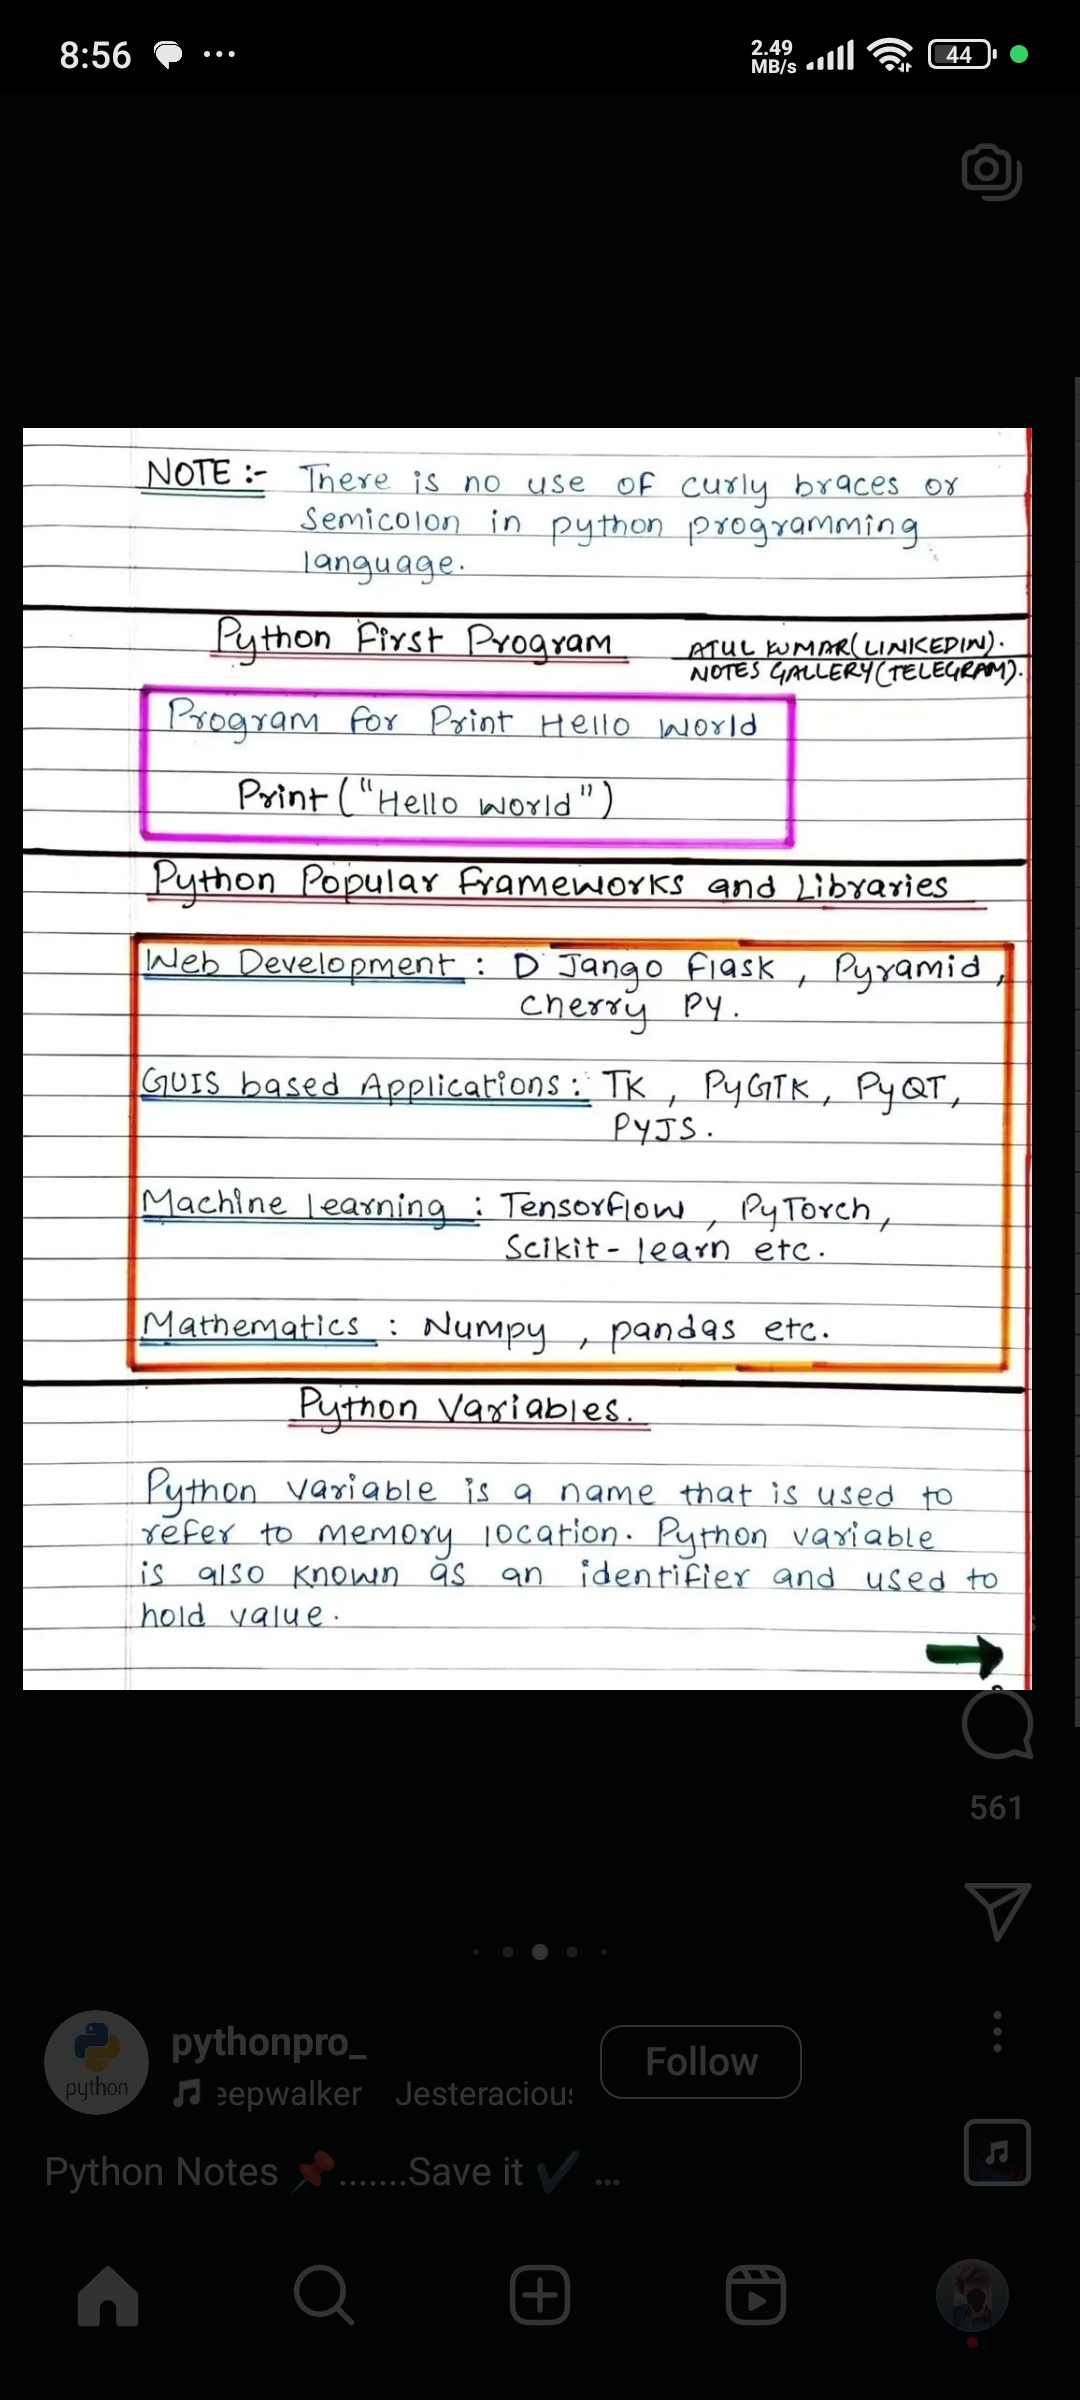 8:56 ...
2.49
MB/s
44
NOTE :- There is no use of curly braces or
Semicolon in python programming
language.
Python First Program
ATUL KUMAR(LINKEDIN).
NOTES GALLERY(TELEGRAM).
Program for Print Hello World
Print ("Hello World")
Python Popular Frameworks and Libraries
Web Development : D Jango Flask , Pyramid ,
Cherry PY.
GUIS based Applications : TK , PyGTK , PyQT ,
PYJS .
Machine learning : Tensorflow , PyTorch ,
Scikit - learn etc .
Mathematics : Numpy , pandas etc.
Python Variables.
Python variable is a name that is used to
refer to memory location. Python variable
is also known as an identifier and used to
hold value .
561
python
pythonpro_
eepwalker Jesteracious
Follow
Python Notes 📌.......Save it ✔️ ...